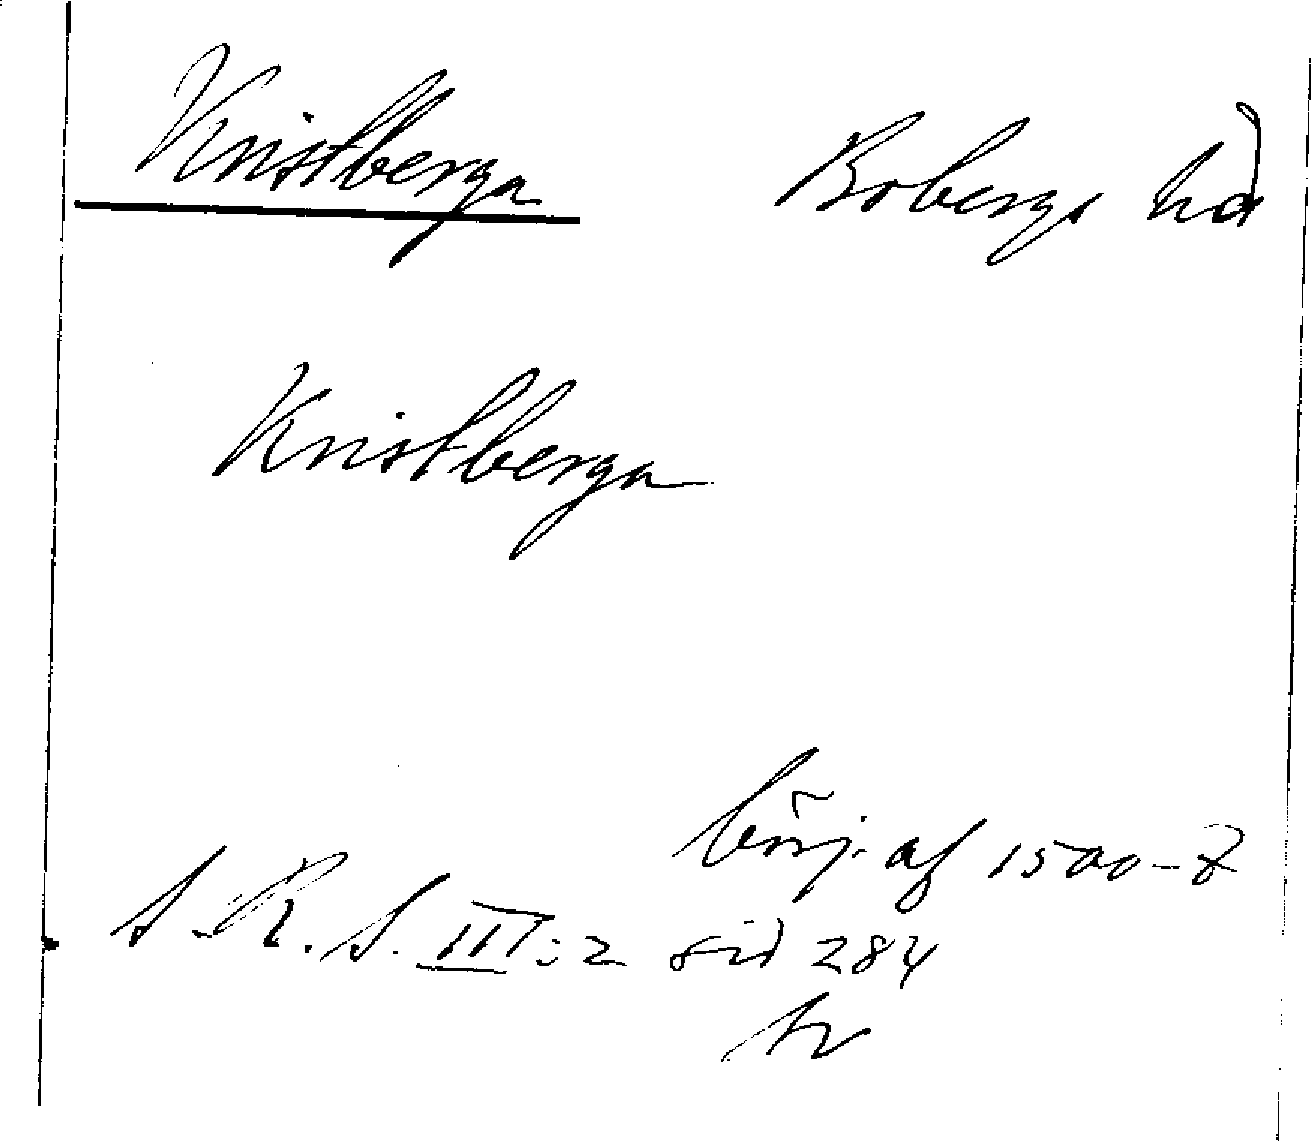 Kristberga Bobergs hd
Kristberga
börj. af 1500-t
S. R. S. III:2 sid 284
tr